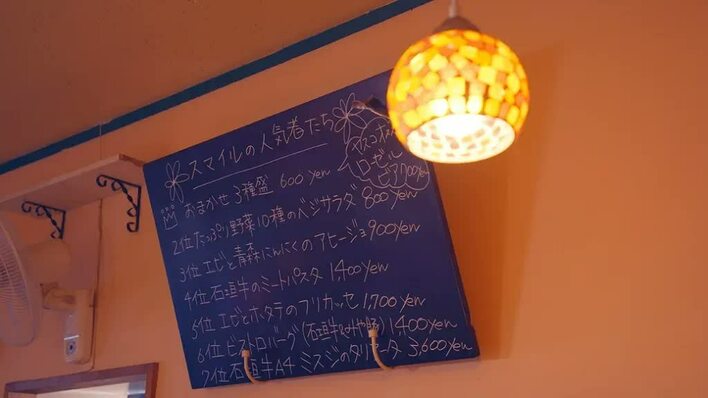 スマイルの人気者たち
ロゼル
ビア700yen
おまかせ3種盛 600yen
2位たっぷり野菜10種のベジサラダ 800yen
3位エビと青森にんにくのアヒージョ900yen
4位石垣牛のミートパスタ 1,400yen
5位エビとホタテのフリカッセ 1,700yen
6位ビストロバーグ(石垣牛&みや豚) 1,400yen
7位石垣牛A4 ミスジのタリアータ 3,600yen